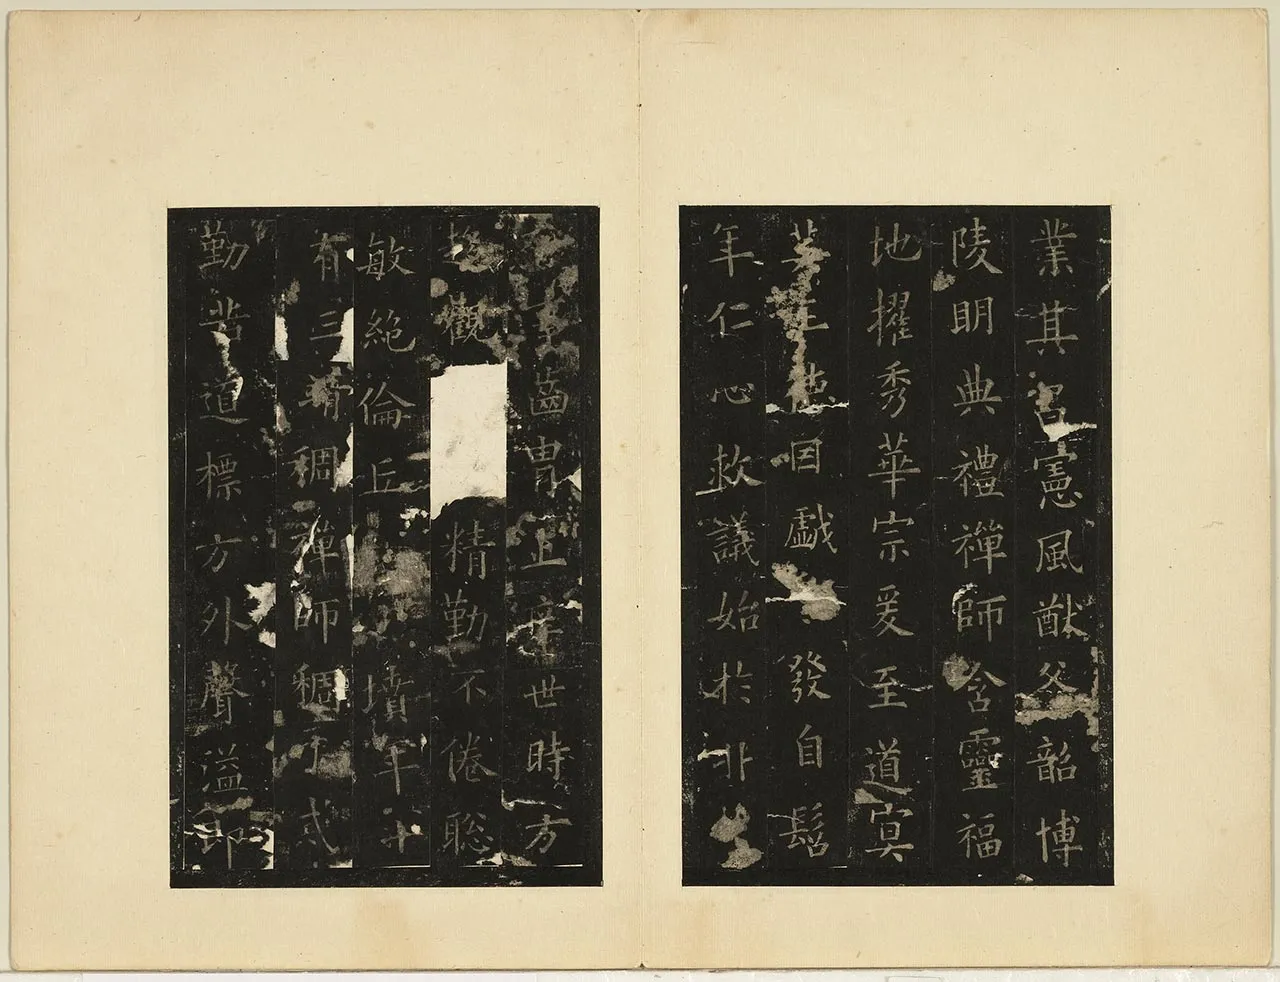 業其名憲風猷爸韶博
陵明典禮禪師含靈福
地擢秀華宗爰至道寞
生德因戱發自髫
年仁心救議始於非
齒胄上庠世時方
趍觀精勤不倦聡
敏絶倫丘墳年十
有三稠禪師稠弍
勤苦道標方外聲溢